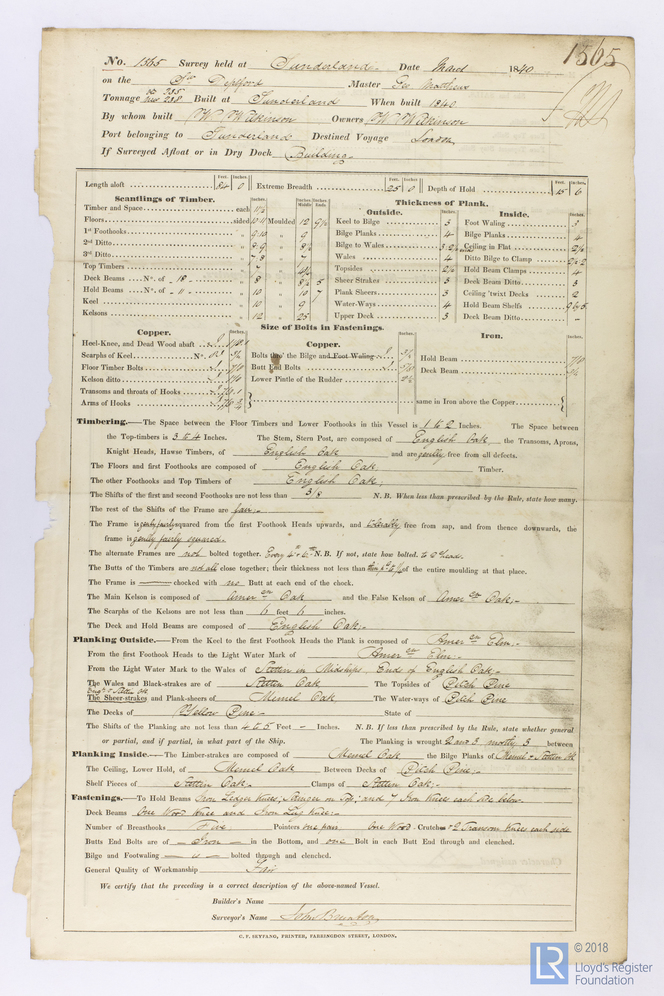 1565
No. 1565 Survey held at Sunderland Date March 1840
on the Deptford Master Geo Matthews
Tonnage Built at Sunderland When built 1840
By whom built W Wilkinson Owners W Wilkinson
Port belonging to Sunderland Destined Voyage London
If Surveyed Afloat or in Dry Dock Building
Feet. Inches. Feet. Inches. Feet. Inches.
Length aloft 84 0 Extreme Breadth 25 0 Depth of Hold 15 6
Scantlings of Timber. Thickness of Plank.
Outside. Inside.
Timber and Space each
Floors sided 10·11 Moulded 12 9½
1st Foothooks „ 9·10 „ 9
2nd Ditto „ 8·9 „ 8½
3rd Ditto „ 7/8 „ 7
Top Timbers „ 7 „ 4½
Deck Beams No. of 18 „ 8 „ 8½ 5
Hold Beams No. of 11 „ 10 „ 10 7
Keel „ 10 „ 9
Kelsons „ 12 „ 25
Keel to Bilge 3
Bilge Planks 4
Bilge to Wales
Wales 4
Topsides 2½
Sheer Strakes 3
Plank Sheers 3
Water-Ways 4
Upper Deck 3
Foot Waling 3
Bilge Planks 4
Ceiling in Flat 2½
Ditto Bilge to Clamp
Hold Beam Clamps 4
Deck Beam Ditto 3
Ceiling 'twixt Decks 2
Hold Beam Shelfs
Deck Beam Ditto –
Size of Bolts in Fastenings.
Copper. Copper. Iron.
Heel-Knee, and Dead Wood abaft
Scarphs of Keel No.
Floor Timber Bolts
Kelson ditto
Transoms and throats of Hooks
Arms of Hooks
Bolts thro' the Bilge and Foot Waling
Butt End Bolts
Lower Pintle of the Rudder
same in Iron above the Copper
Hold Beam
Deck Beam
Timbering.—The Space between the Floor Timbers and Lower Foothooks in this Vessel is 1 to 2 Inches. The Space between
the Top-timbers is 3 to 4 Inches. The Stem, Stern Post, are composed of English Oak, the Transoms, Aprons,
Knight Heads, Hawse Timbers, of English Oak and are gently free from all defects.
The Floors and first Foothooks are composed of English Oak Timber.
The other Foothooks and Top Timbers of English Oak
The Shifts of the first and second Foothooks are not less than 3/8 N.B. When less than prescribed by the Rule, state how many.
The rest of the Shifts of the Frame are fair
The Frame is gently fairly squared from the first Foothook Heads upwards, and tolerably free from sap, and from thence downwards, the
frame is gently fairly squared
The alternate Frames are not bolted together. N.B. If not, state how bolted.
The Butts of the Timbers are not all close together; their thickness not less than of the entire moulding at that place.
The Frame is chocked with no Butt at each end of the chock.
The Main Kelson is composed of Amer an Oak and the False Kelson of Amer an Oak
The Scarphs of the Kelsons are not less than 6 feet 6 inches.
The Deck and Hold Beams are composed of English Oak
Planking Outside.—From the Keel to the first Foothook Heads the Plank is composed of Amer an Elm
From the first Foothook Heads to the Light Water Mark of Amer an Elm
From the Light Water Mark to the Wales of Stettin in Midships Ends of English Oak
The Wales and Black-strakes are of Stettin Oak The Topsides of Pitch Pine
Engl & Stettin Ok
The Sheer-strakes and Plank-sheers of Memel Oak The Water-ways of Pitch Pine
The Decks of Yellow Pine State of
The Shifts of the Planking are not less than 4 to 5 Feet – Inches. N.B. If less than prescribed by the Rule, state whether general
or partial, and if partial, in what part of the Ship. The Planking is wrought 2 and 3 mostly 3 between
Planking Inside.—The Limber-strakes are composed of Memel Oak the Bilge Planks of Memel & Stettin Ok
The Ceiling, Lower Hold, of Memel Oak Between Decks of Pitch Pine
Shelf Pieces of Stettin Oak Clamps of Stettin Oak
Fastenings.—To Hold Beams Iron Ledger Knees, Stringer on Top, and 7 Iron Knees each side below
Deck Beams One Wood Knee and Iron Lug Knee
Number of Breasthooks Five Pointers one pair One Wood Crutches & 2 Transom Knees each side
Butts End Bolts are of Iron in the Bottom, and one Bolt in each Butt End through and clenched.
Bilge and Footwaling bolted through and clenched.
General Quality of Workmanship Fair
We certify that the preceding is a correct description of the above-named Vessel.
Builder's Name
Surveyor's Name John Brunton
C. F. SEYFANG, PRINTER, FARRINGDON STREET, LONDON.
LR © 2018
Lloyd's Register
Foundation